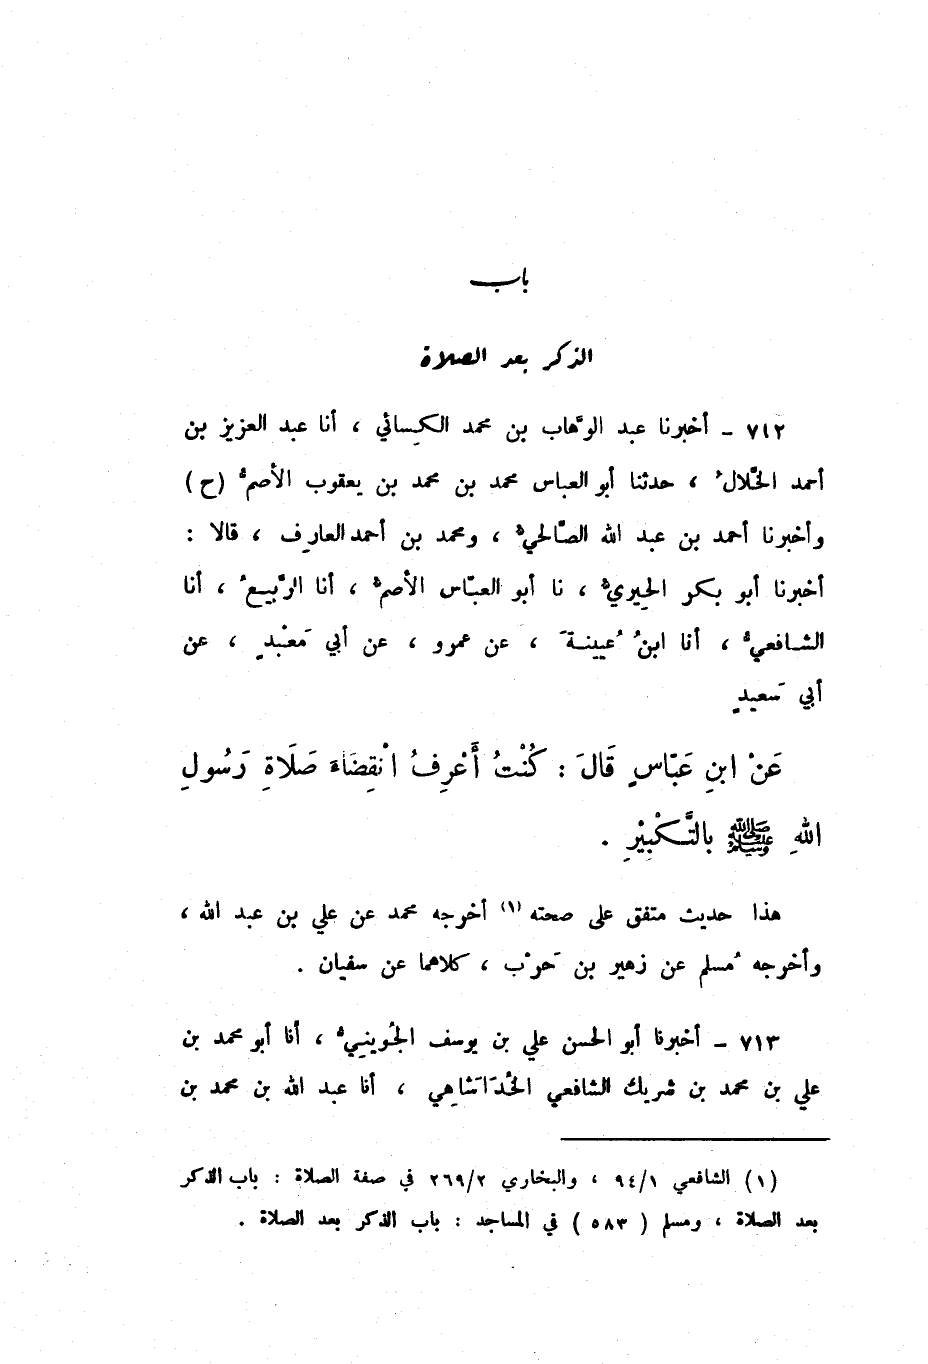 باب
الذكر بعد الصلاة
٧١٢ – أخبرنا عبد الوهَّاب بن محمد الكِسائي ، أنا عبد العزيز بن
أحمد الخَلال ُ ، حدثنا أبو العباس محمد بن محمد بن يعقوب الأصم ُّ (ح)
وأخبرنا أحمد بن عبد الله الصَّالحي ُّ ، ومحمد بن أحمد العارِف ، قالا :
أخبرنا أبو بكر الحِيري ُّ ، نا أبو العبَّاس الأصم ُّ ، أنا الرَّبيع ُ ، أنا
الشافعي ُّ ، أنا ابن ُ عُيينة َ ، عن عمرو ، عن أبي مَعْبدٍ ، عن
أبي سَعيدٍ
عَنْ ابنِ عَبّاسٍ قَالَ : كُنْتُ أَعْرِفُ انْقِضَاءَ صَلَاةِ رَسُولِ
اللهِ ﷺ بالتَّكْبِيْرِ .
هذا حديث متفق على صحته (١) أخرجه محمد عن علي بن عبد الله ،
وأخرجه مُسلم عن زهير بن حَرْب ، كلاهما عن سفيان .
٧١٣ – أخبرنا أبو الحسن علي بن يوسف الجُوينيُّ ، أنا أبو محمد بن
علي بن محمد بن شريك الشافعي الخُدَاشَاهي ، أنا عبد الله بن محمد بن
(١) الشافعي ٩٤/١ ، والبخاري ٢٦٩/٢ في صفة الصلاة : باب الذكر
بعد الصلاة ، ومسلم ( ٥٨٣ ) في المساجد : باب الذكر بعد الصلاة .